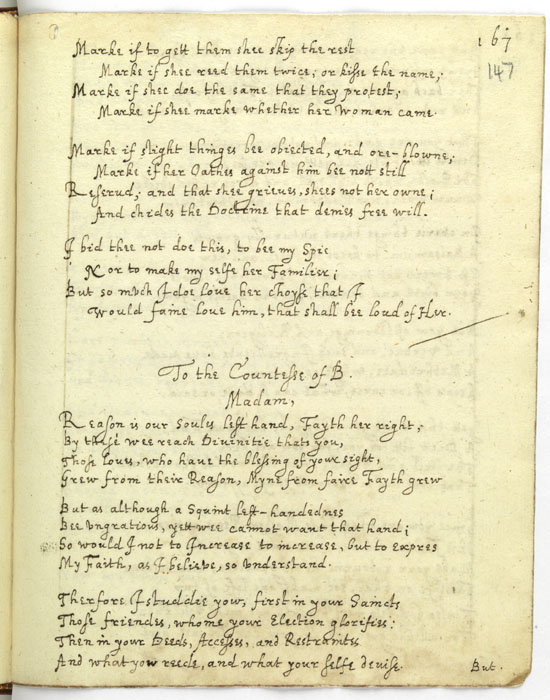 167
147
Marke if to gett them shee skip the rest
Marke if shee reed them twice, or kisse the name,
Marke if shee doe the same that they protest;
Marke if shee marke whether her Woman came.
Marke if slight thinges bee obiected, and ore-blowne,
Marke if her Oathes against him bee nott still
Reserud, and that shee grieues, shees not her owne;
And chides the Doctrine that denies free will.
I bid thee not doe this, to bee my Spie
Nor to make my selfe her Familier;
But so much I doe loue her choyse that I
would faine loue him, that shall bee loud of Her.
To the Countesse of B.
Madam,
Reason is our Soules left hand, Fayth her right;
By these wee reach Diuinitie thats you,
Those loues, who haue the blessing of your sight,
Grew from their Reason, Myne from faire Fayth grew
But as although a Squint left-handednes
Bee vngratious, yett wee cannot want that hand;
So would I not to Increase to increase, but to expres
My Faith, as I believe, so vnderstand.
Therfore I studdie yow, first in your Saincts
Those friendes, whome your Election glorifies:
Then in your Deeds, Accesses, and Restraintes
And what yow reede, and what your selfe deuise.
But.